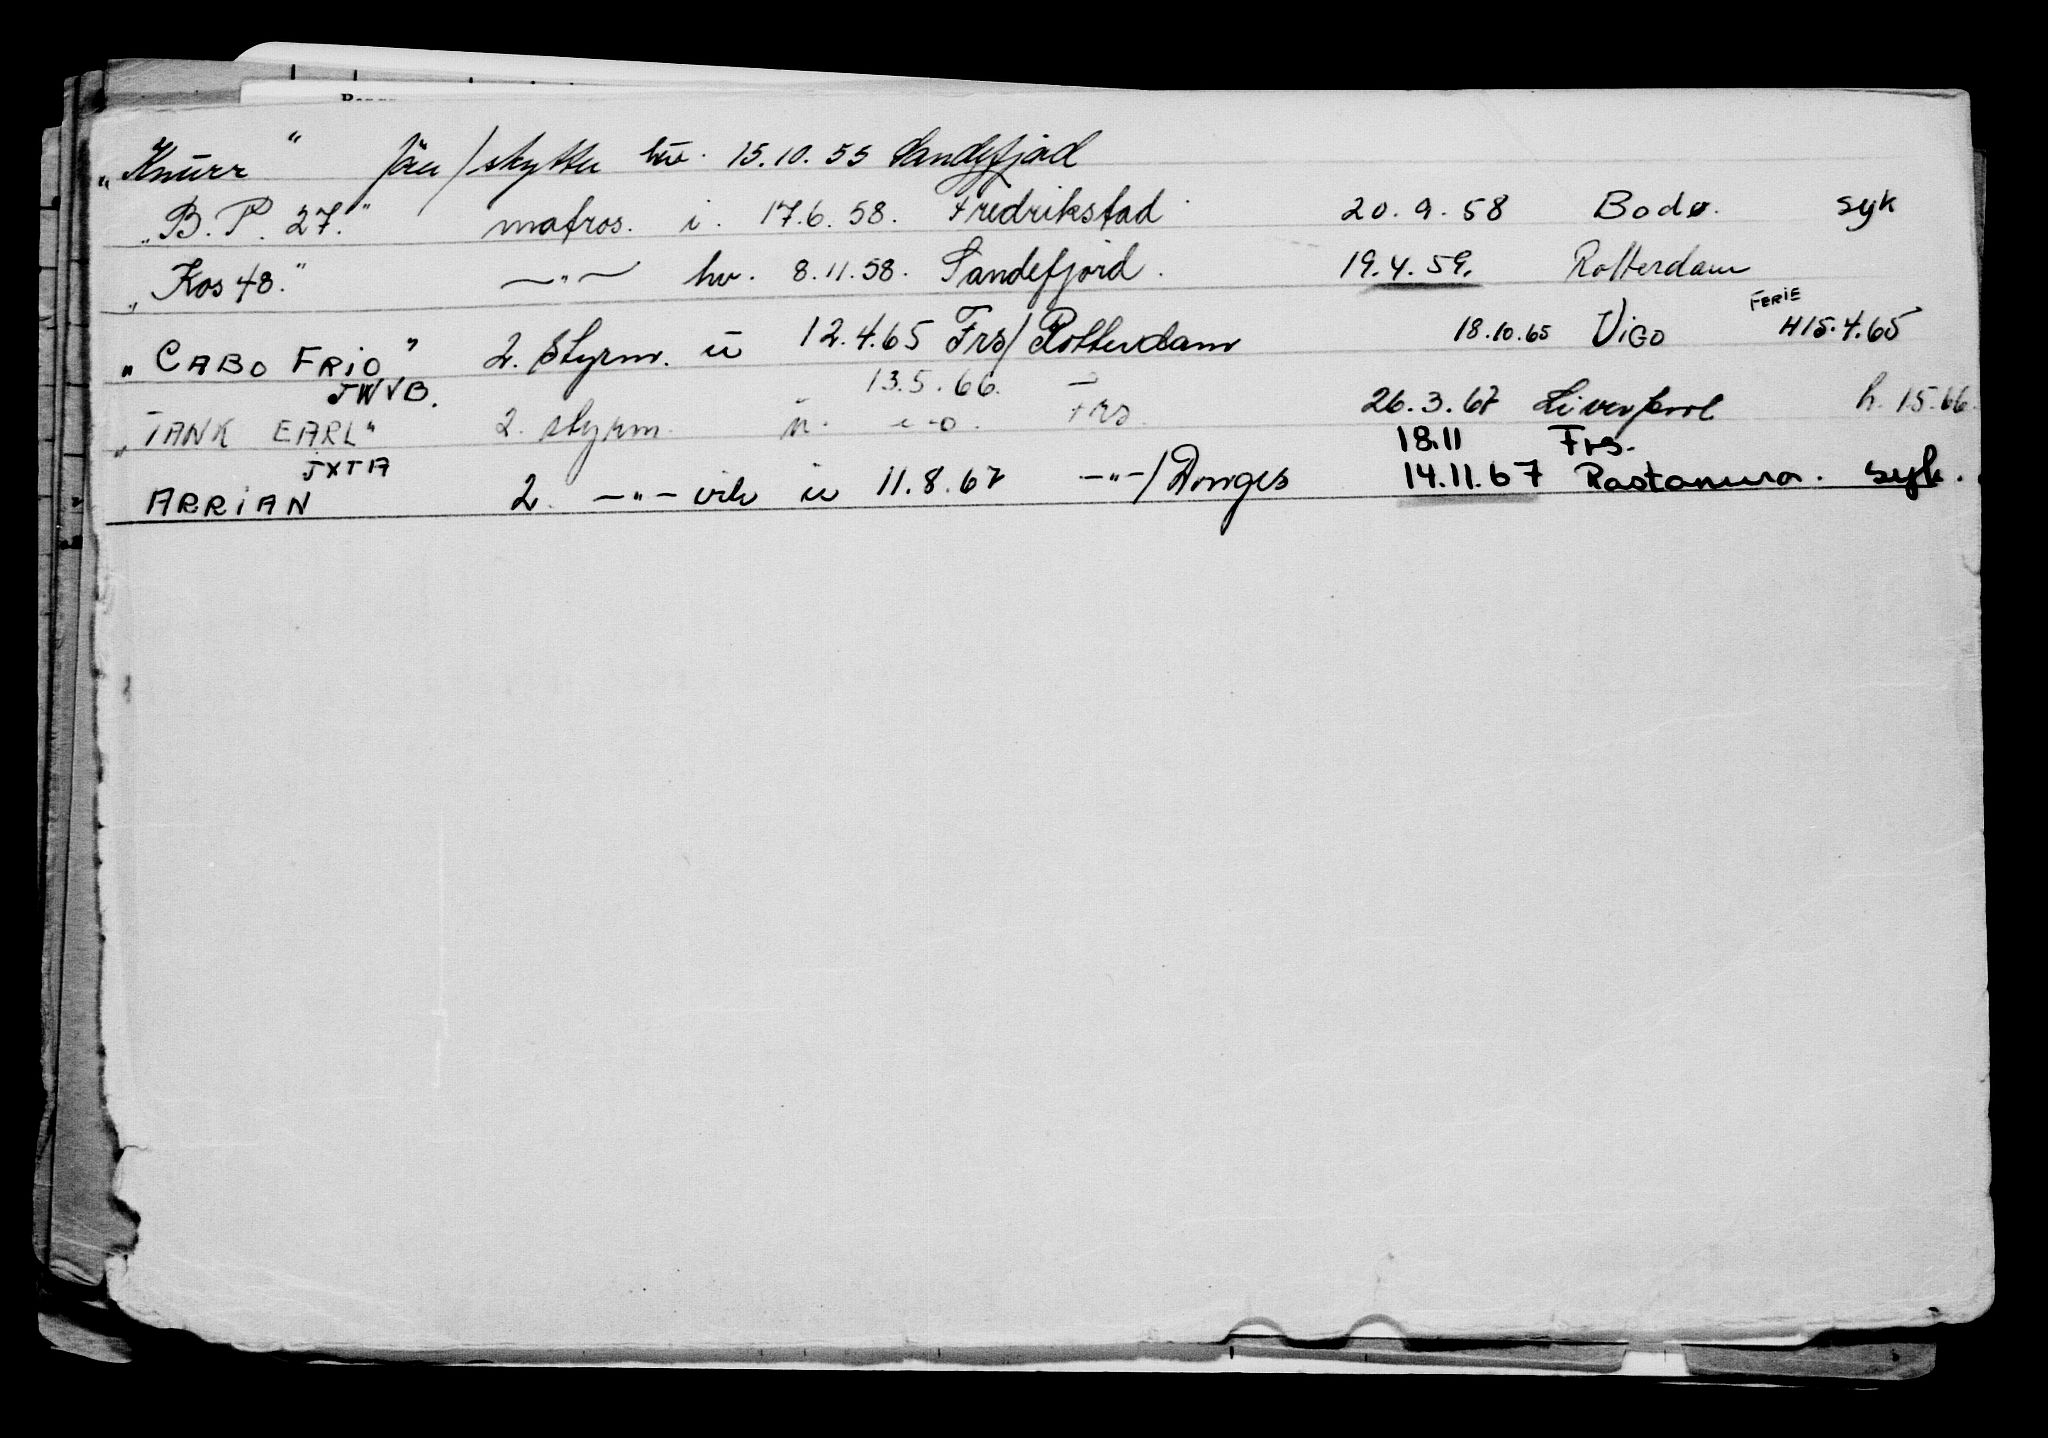 „Knurr" /skytter hv. 15.10.55 Sandefjord
„B. P. 27." matros. i. 17.6.58. Fredrikstad. 20.9.58 Bodø. syk
„Kos 48." —"— hv. 8.11.58. Sandefjord. 19.4.59. Rotterdam
„CABO FRIO" 2. styrm. u 12.4.65 Frs/Rotterdam 18.10.65 VIGO FERIE H15.4.65
JWVB. 13.5.66.
„TANK EARL" 2. styrm. u. Frs. 26.3.67 Liverpool h. 1.5.66.
JXTA 18.11 Frs.
ARRIAN 2. —"— vik u 11.8.67 —"—/Donges 14.11.67 Rastanura. syk.